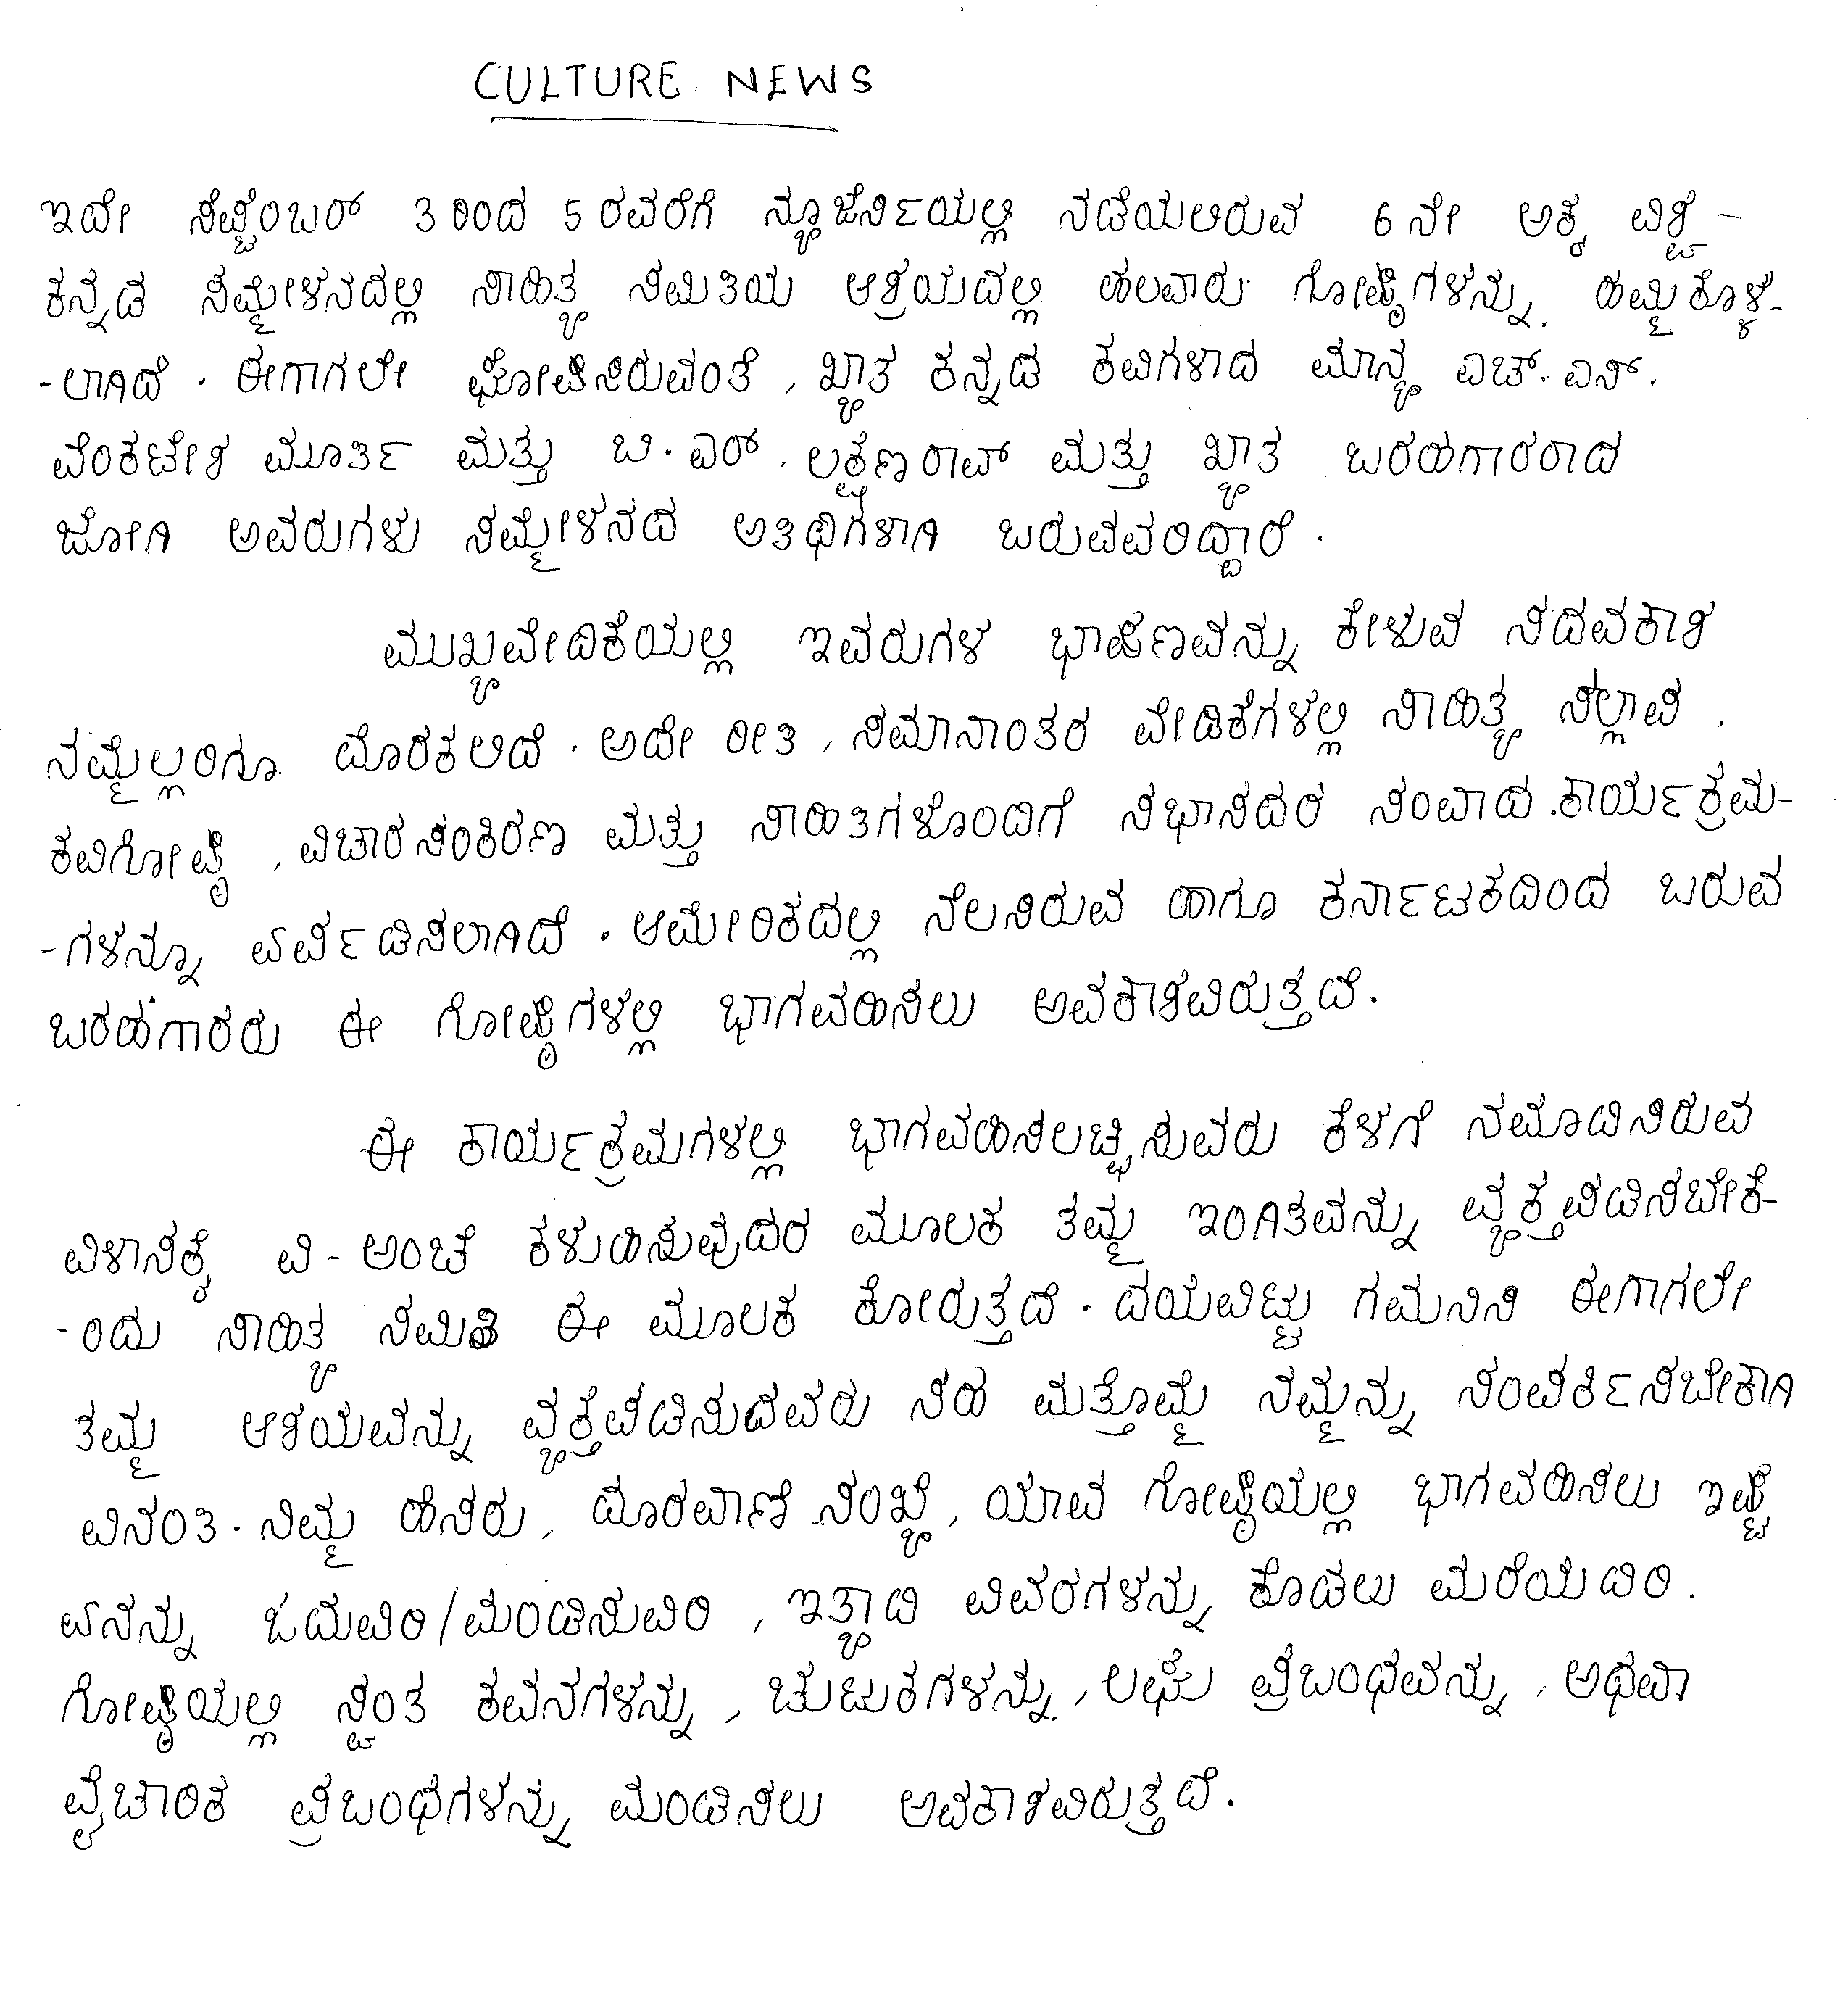 CULTURE NEWS
ಇದೇ ಸೆಪ್ಟೆಂಬರ್ 3 ರಿಂದ 5 ರವರೆಗೆ ನ್ಯೂಜೆರ್ಸಿಯಲ್ಲಿ ನಡೆಯಲಿರುವ 6 ನೇ ಅಕ್ಕ ವಿಶ್ವ-
ಕನ್ನಡ ಸಮ್ಮೇಳನದಲ್ಲಿ ಸಾಹಿತ್ಯ ಸಮಿತಿಯ ಆಶ್ರಯದಲ್ಲಿ ಹಲವಾರು ಗೋಷ್ಠಿಗಳನ್ನು ಹಮ್ಮಿಕೊಳ್ಳ-
-ಲಾಗಿದೆ. ಈಗಾಗಲೇ ಘೋಷಿಸಿರುವಂತೆ, ಖ್ಯಾತ ಕನ್ನಡ ಕವಿಗಳಾದ ಮಾನ್ಯ ಎಚ್. ಎಸ್.
ವೆಂಕಟೇಶ ಮೂರ್ತಿ ಮತ್ತು ಬಿ. ಎರ್. ಲಕ್ಷ್ಮಣರಾವ್ ಮತ್ತು ಖ್ಯಾತ ಬರಹಗಾರರಾದ
ಜೋಗಿ ಅವರುಗಳು ಸಮ್ಮೇಳನದ ಅತಿಥಿಗಳಾಗಿ ಬರುವವರಿದ್ದಾರೆ.
ಮುಖ್ಯವೇದಿಕೆಯಲ್ಲಿ ಇವರುಗಳ ಭಾಷಣವನ್ನು ಕೇಳುವ ಸದವಕಾಶ
ನಮ್ಮೆಲ್ಲರಿಗೂ ದೊರಕಲಿದೆ. ಅದೇ ರೀತಿ, ಸಮಾನಾಂತರ ವೇದಿಕೆಗಳಲ್ಲಿ ಸಾಹಿತ್ಯ ಸಲ್ಲಾಪ,
ಕವಿಗೋಷ್ಠಿ, ವಿಚಾರಸಂಕಿರಣ ಮತ್ತು ಸಾಹಿತಿಗಳೊಂದಿಗೆ ಸಭಾಸದರ ಸಂವಾದ ಕಾರ್ಯಕ್ರಮ-
-ಗಳನ್ನೂ ಏರ್ಪಡಿಸಲಾಗಿದೆ. ಆಮೇರಿಕದಲ್ಲಿ ನೆಲಸಿರುವ ಹಾಗೂ ಕರ್ನಾಟಕದಿಂದ ಬರುವ
ಬರಹಗಾರರು ಈ ಗೋಷ್ಠಿಗಳಲ್ಲಿ ಭಾಗವಹಿಸಲು ಅವಕಾಶವಿರುತ್ತದೆ.
ಈ ಕಾರ್ಯಕ್ರಮಗಳಲ್ಲಿ ಭಾಗವಹಿಸಲಚ್ಛಿಸುವರು ಕೆಳಗೆ ನಮೂದಿಸಿರುವ
ವಿಳಾಸಕ್ಕೆ ವಿ-ಅಂಚೆ ಕಳುಹಿಸುವುದರ ಮೂಲಕ ತಮ್ಮ ಇಂಗಿತವನ್ನು ವ್ಯಕ್ತಪಡಿಸಬೇಕೆ-
-ಂದು ಸಾಹಿತ್ಯ ಸಮಿತಿ ಈ ಮೂಲಕ ಕೋರುತ್ತದೆ. ದಯವಿಟ್ಟು ಗಮನಿಸಿ ಈಗಾಗಲೇ
ತಮ್ಮ ಆಶಯವನ್ನು ವ್ಯಕ್ತಪಡಿಸಿದವರು ಸಹ ಮತ್ತೊಮ್ಮೆ ನಮ್ಮನ್ನು ಸಂಪರ್ಕಿಸಬೇಕಾಗಿ
ವಿನಂತಿ. ನಿಮ್ಮ ಹೆಸರು, ದೂರವಾಣಿ ಸಂಖ್ಯೆ, ಯಾವ ಗೋಷ್ಠಿಯಲ್ಲಿ ಭಾಗವಹಿಸಲು ಇಷ್ಟ
ಏನನ್ನು ಓದುವಿರಿ/ಮಂಡಿಸುವಿರಿ, ಇತ್ಯಾದಿ ವಿವರಗಳನ್ನು ಕೊಡಲು ಮರೆಯದಿರಿ.
ಗೋಷ್ಠಿಯಲ್ಲಿ ಸ್ವಂತ ಕವನಗಳನ್ನು, ಚುಟುಕಗಳನ್ನು, ಲಘು ಪ್ರಬಂಧವನ್ನು, ಅಥವಾ
ವೈಚಾರಿಕ ಪ್ರಬಂಧಗಳನ್ನು ಮಂಡಿಸಲು ಅವಕಾಶವಿರುತ್ತದೆ.